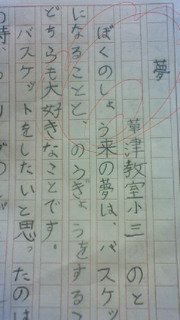 夢
草津教室小三 のと
ぼくのしょう来の夢は、バスケッ
になることと、のうぎょうをするこ
どちらも大好きなことです。
バスケットをしたいと思ったのは